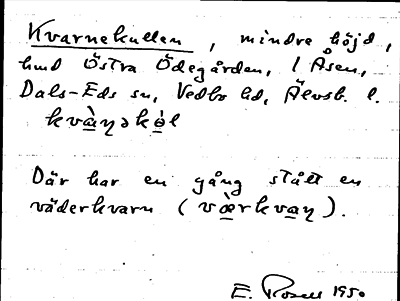 Kvarnekullen, mindre höjd,
hmd Östra Ödegården, 1 Åsen,
Dals-Eds sn, Vedbo hd, Älvsb. l.
kvàṇəkọ́l
Där har en gång stått en
väderkvarn (væ̀rkvaṇ).
E. Rosell 1950